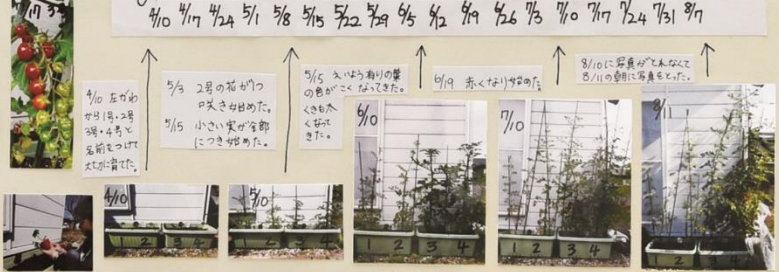 7/17 3号
4/10 4/17 4/24 5/1 5/8 5/15 5/22 5/29 6/5 6/12 6/19 6/26 7/3 7/10 7/17 7/24 7/31 8/7
4/10 左がわ
から1号・2号
3号・4号と
名前をつけて
大じに育てた。
5/3 2号の花が1つ
咲き始めた。
5/15 小さい実が全部
につき始めた。
5/15 えいよう有りの葉
の色がこくなってきた。
くきも太
くなって
きた。
6/19 赤くなり始めた。
8/10に写真がとれなくて
8/11の朝に写真をとった。
4/10
1 2 3 4
5/10
1 2 3 4
6/10
1 2 3 4
7/10
1 2 3 4
8/11
1 2 3 4